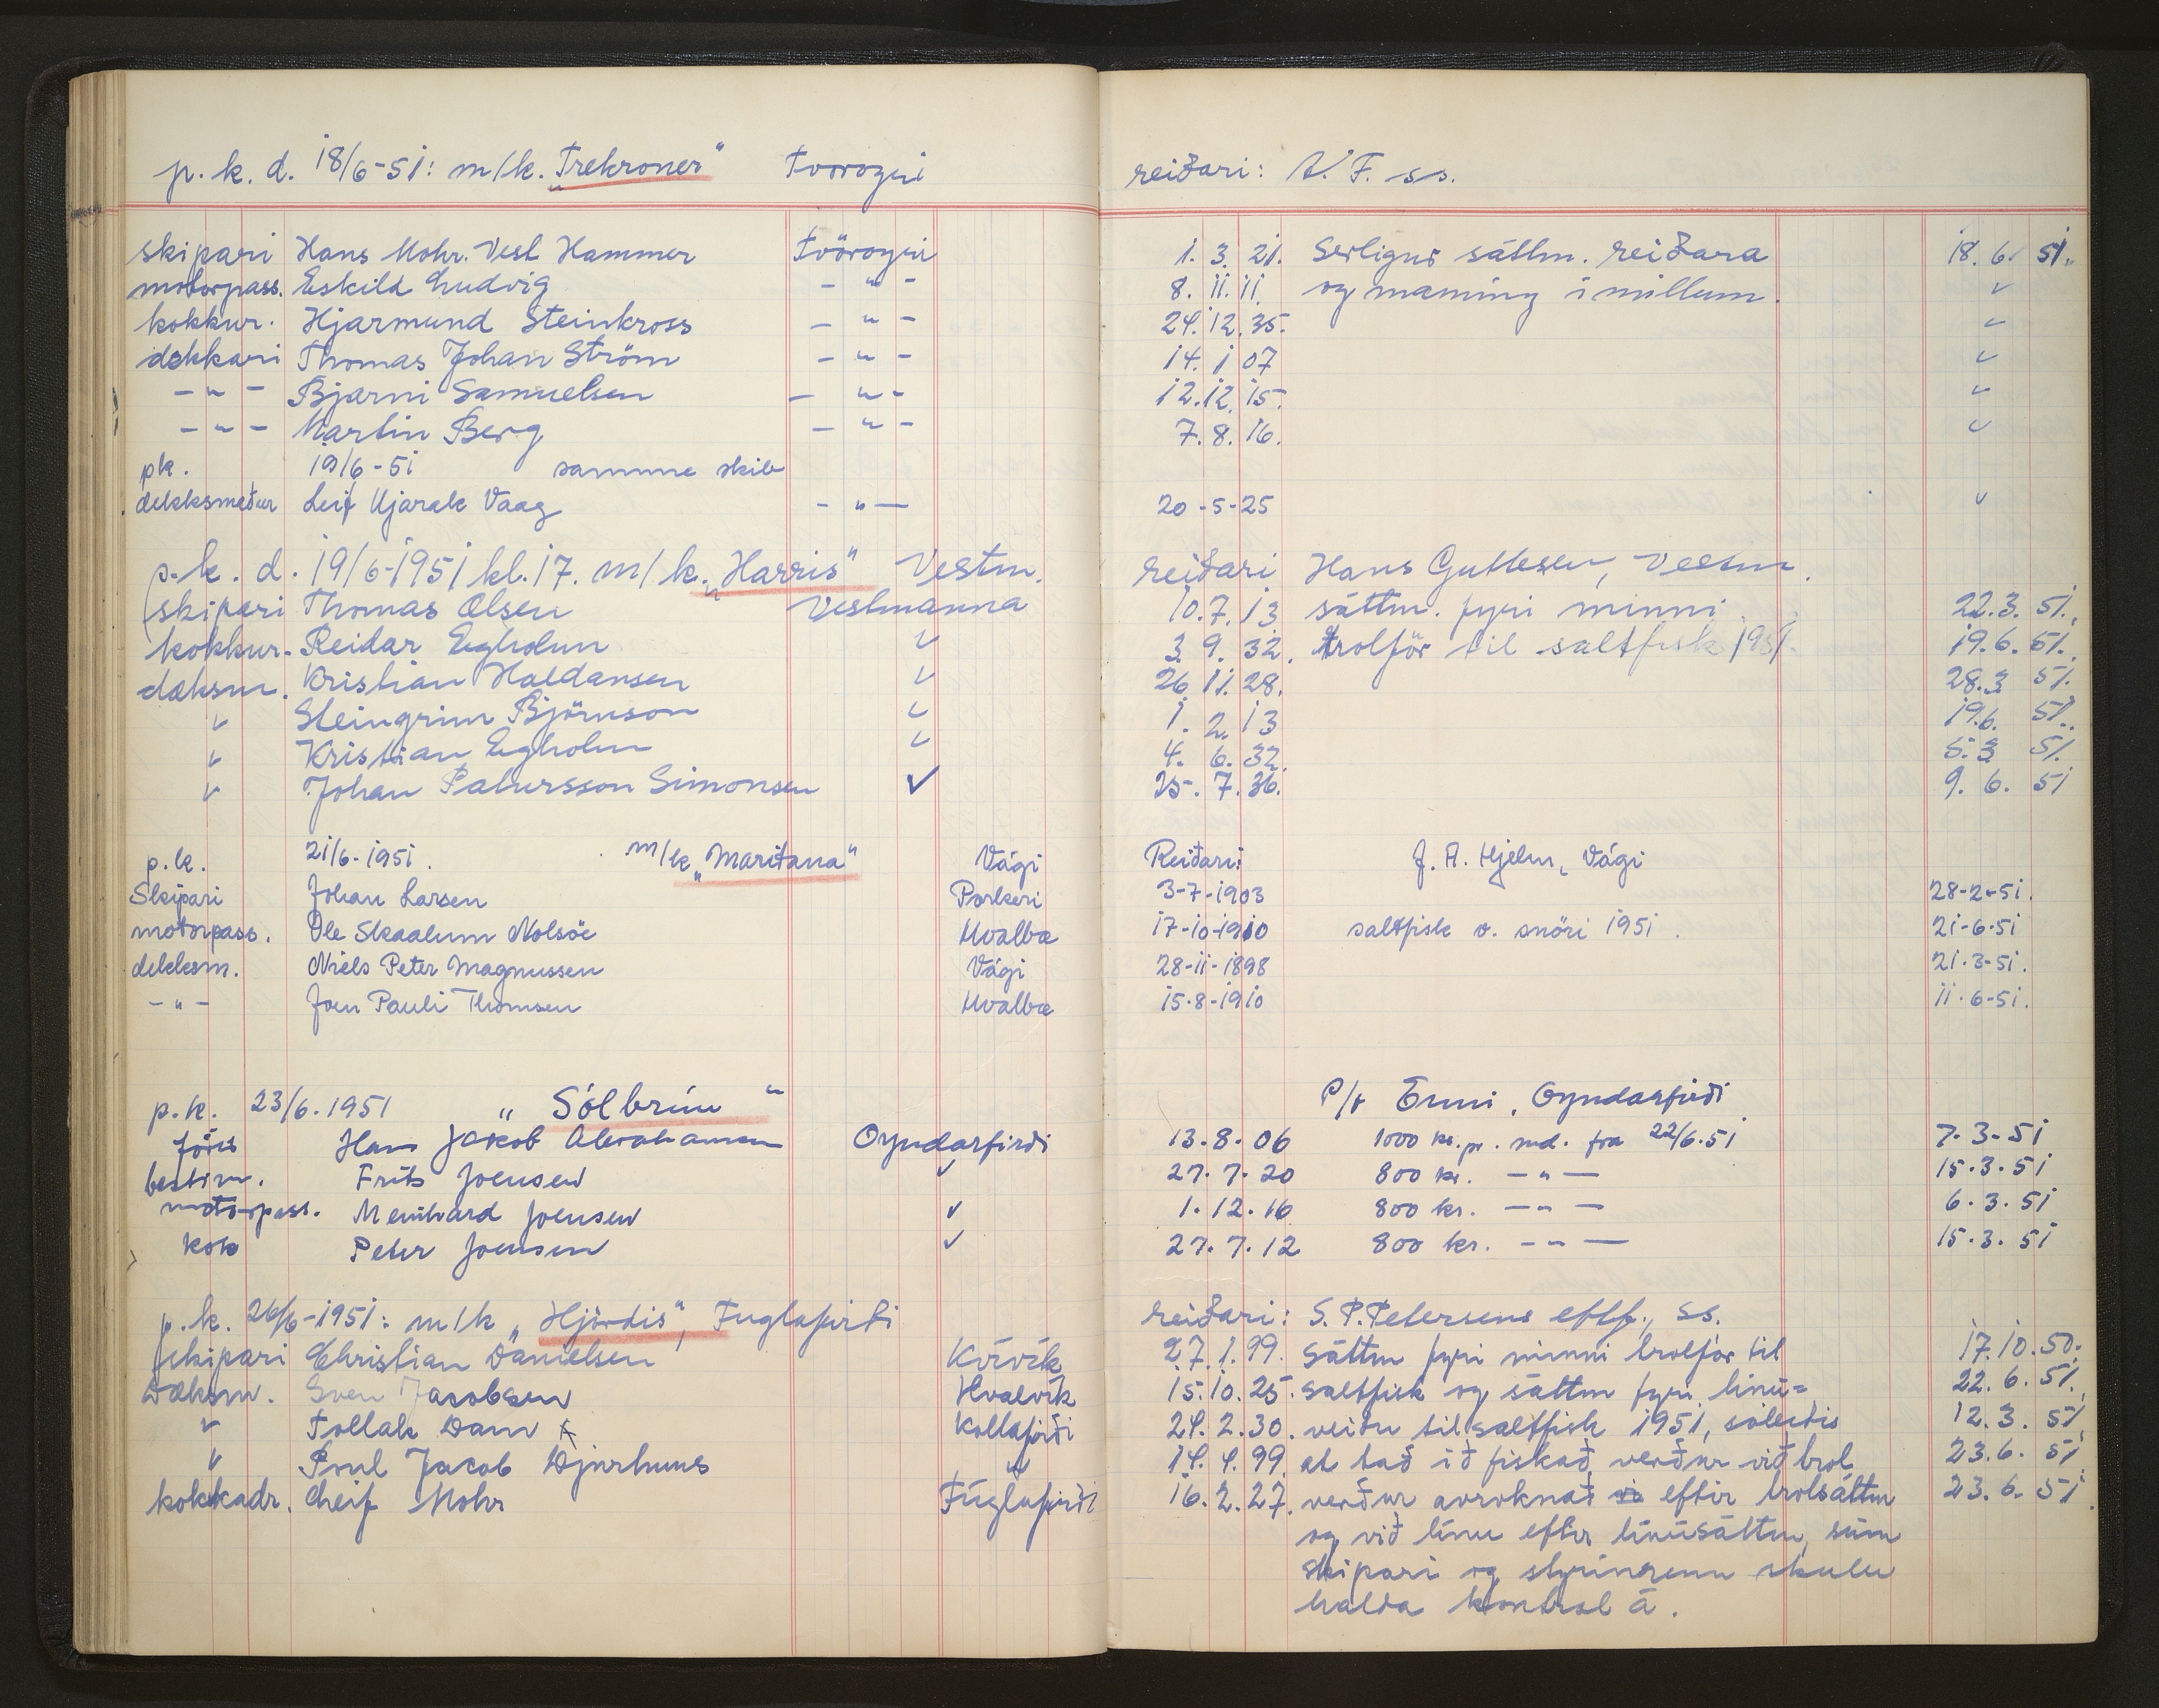 p. k. d. 18/6-51: m/k. „Trekroner" Tvøroyri reiðari: A. F. ss.
skipari Hans Mohr. Vest Hammer Tvöroyri 1. 3. 21. Serligur sáttm. reiðara 18. 6. 51.
motorpass. Eskild Ludvig - " - 8. 11. 11. og manning í millum. "
kokkur. Hjarmund Steinkross - " - 24. 12. 35. "
dekkari Thomas Johan Ström - " - 14. 1 07 "
- " - Bjarni Samuelsen - " - 12. 12. 15. "
- " - Martin Berg - " - 7. 8. 16. "
pk. 19/6-51 samme skib
dekksmeður Leif Ujarak Vaag - " - 20-5-25 "
p.k. d. 19/6-1951 kl. 17. m/k. „Harris" Vestm. reiðari Hans Guttesen, Vestm.
skipari Thomas Olsen Vestmanna 10. 7. 13 sáttm. fyri minni 22. 3. 51.
kokkur. Reidar Egholm " 3. 9. 32. trolför til saltfisk 1951. 19. 6. 51.
dæksm. Kristian Haldansen " 26. 11. 28. 28. 3 51.
" Steingrim Björnson " 1. 2. 13 19. 6. 51.
" Kristian Egholm " 4. 6. 32. 5. 3 51.
" Johan Patursson Simonsen " 25. 7. 36. 9. 6. 51
p.k. 21/6-1951. m/k „Maritana" Vági Reiðari: J. A. Hjelm, Vági
Skipari Johan Larsen Porkeri 3-7-1903 28-2-51.
motorpass. Ole Skaalum Nolsöe Hvalbæ 17-10-1910 saltfisk v. snöri 1951. 21-6-51
dekksm. Niels Peter Magnussen Vági 28-11-1898 21-3-51.
- " - Joen Pauli Thomsen Hvalbæ 15-8-1910 11-6-51.
p.k. 23/6.1951 „ Sólbrún " P/r Enni, Oyndarfirði
förer Hans Jakob Abrahamsen Oyndarfirði 13. 8. 06 1000 kr. pr. md. fra 22/6.51 7. 3-51
bestm. Frits Joensen " 27. 7. 20 800 kr. - " - 15. 3. 51
motorpass. Meinhard Joensen " 1. 12. 16 800 kr. - " - 6. 3. 51
kok Peter Joensen " 27. 7. 12 800 kr. - " - 15. 3. 51
p.k. 26/6-1951: m/k „Hjördis", Fuglafirði reiðari: S. P. Petersens eftf., ss.
skipari Christian Danielsen Kvívík 27. 1. 99. Sáttm fyri minni trolför til 17. 10. 50.
Dæksm. Sven Jacobsen Hvalvík 15. 10. 25. saltfisk og sáttm fyri línu= 22. 6. 51.
" Tollak Dam Kollafjøði 24. 2. 30. veiðu til saltfisk 1951, soleiðis 12. 3. 51
" Poul Jacob Djurhuus " 14. 4. 99. at tað ið fiskað verður við trol 23. 6. 51
kokkadr. Leif Mohr Fuglafirði 16. 2. 27. verður avroknað eftir trolsáttm 23. 6. 51.
og við línu eftir línusáttm, sum
skipari og
halda kontrol á.